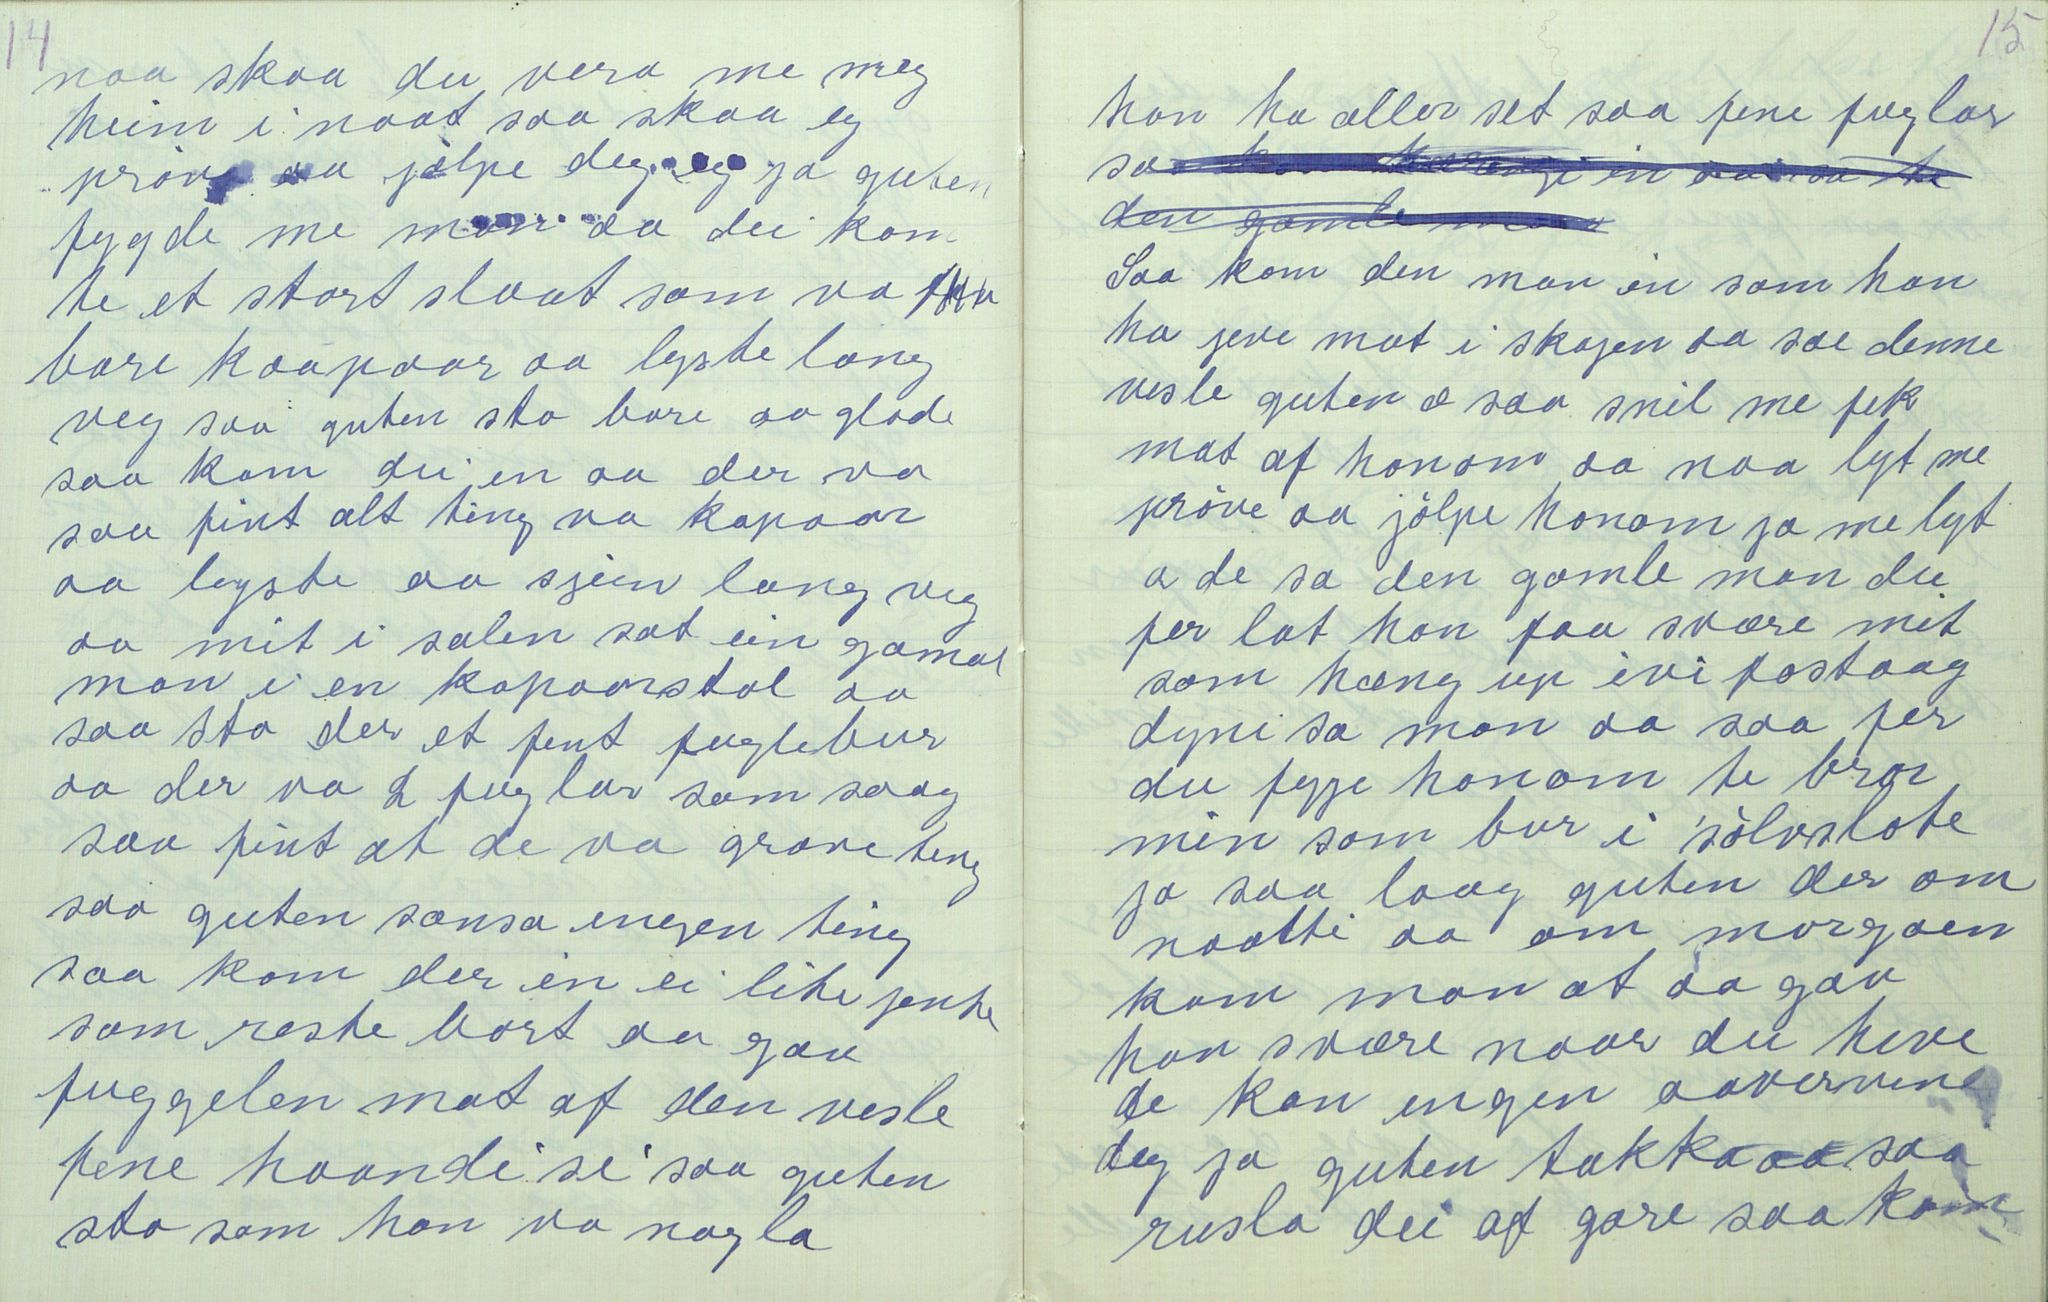 14
naa skaa du vera me meg
heim i naat saa skaa eg
pröve aa jölpe deg ja guten
fygde me man aa dei kom
te et stort slaat som va
bare kaapaar aa lyste lang
veg saa guten sto bare aa glode
saa kom dei en aa der va
saa fint alt ting va kapaar
aa lyste aa sjein lang veg
aa mit i salen sat ein gamal
man i en kapaarstol aa
saa sto der et fent fuglebur
aa der va 2 fuglar som saag
saa fint at de va grave teng
saa guten sansa ingen ting
saa kom der in ei lite jente
som reste bort aa gav
fuggelen mat af den vesle
fene haandi si saa guten
sto som han va nagla
15
han ha aller set saa fene fuglar
sa kom kæringi in aa sa te
den gamle man
Saa kom den man in som han
ha jeve mat i skogen aa sae denne
vesle guten æ saa snil me fek
mat af honom aa naa lyt me
pröve aa jölpe honom ja me lyt
a de sa den gamle man du
fer lat han faa svære mit
som hæng up ivi fostaag
dyni sa man aa saa fer
du fygje honom te bror
min som bur i sölvslote
ja saa laag guten der om
naatti aa om morgaen
kom man at aa gav
han svære naar du heve
de kan engen aavervine
deg ja guten takka aa saa
rusla dei af gare saa kom